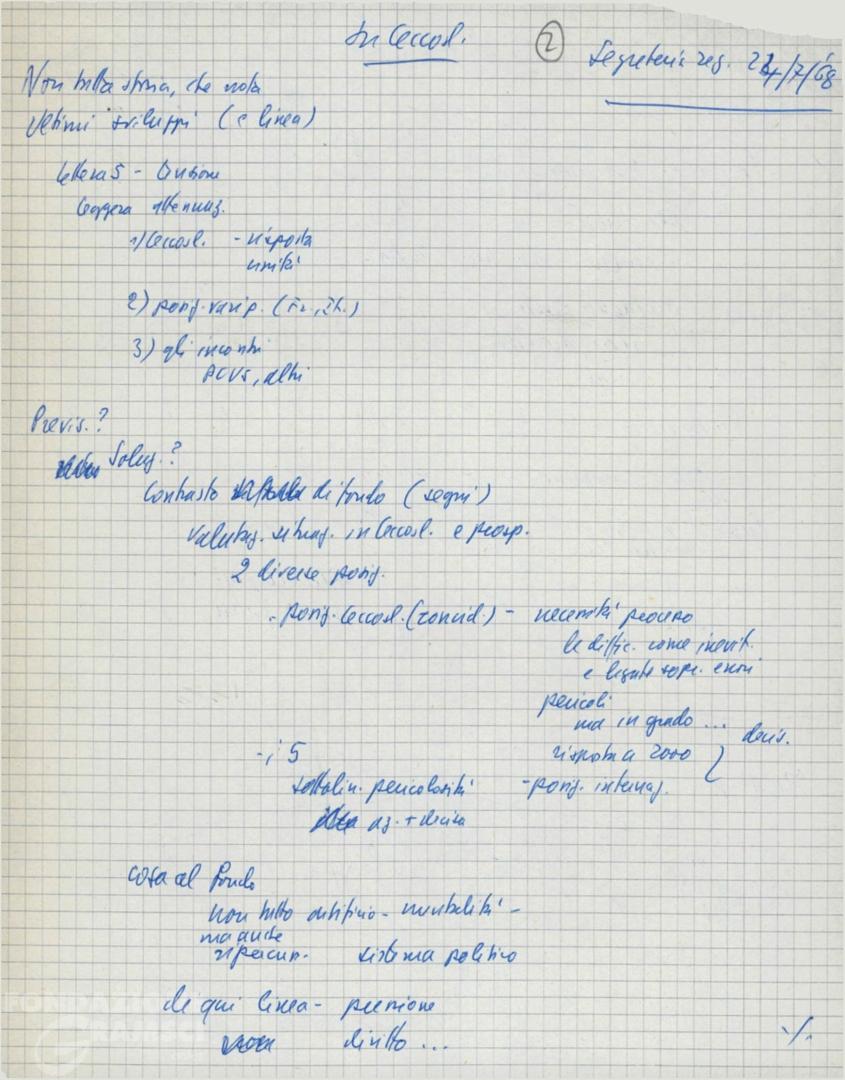 In Cecosl.
2
Segreteria reg. 24/7/68
Non tutta storia, che nota
Ultimi sviluppi (e linea)
lettera 5 - tensione
leggera attenuaz.
1) Cecosl. - risposta
unità
2) posiz. vari p. (
3) gli incontri
PCUS, altri
Previs.?
Soluz.?
Contrasto di fondo (segni)
Valutaz. situaz. in Cecosl. e prosp.
2 diverse posiz.
- posiz. Cecosl. (condiv.) - necessità processo
le diffic. come inevit.
e legate sopr. errori
pericoli
ma in grado ...
- i 5
risposta 2000
decis.
sottolin. pericolosità
- posiz. internaz.
az. + decisa
cosa al fondo
non tutto artificio - mentalità -
ma anche
ripercuss. sistema politico
di qui linea - pressione
diritto ...
./.
FONDAZIONE